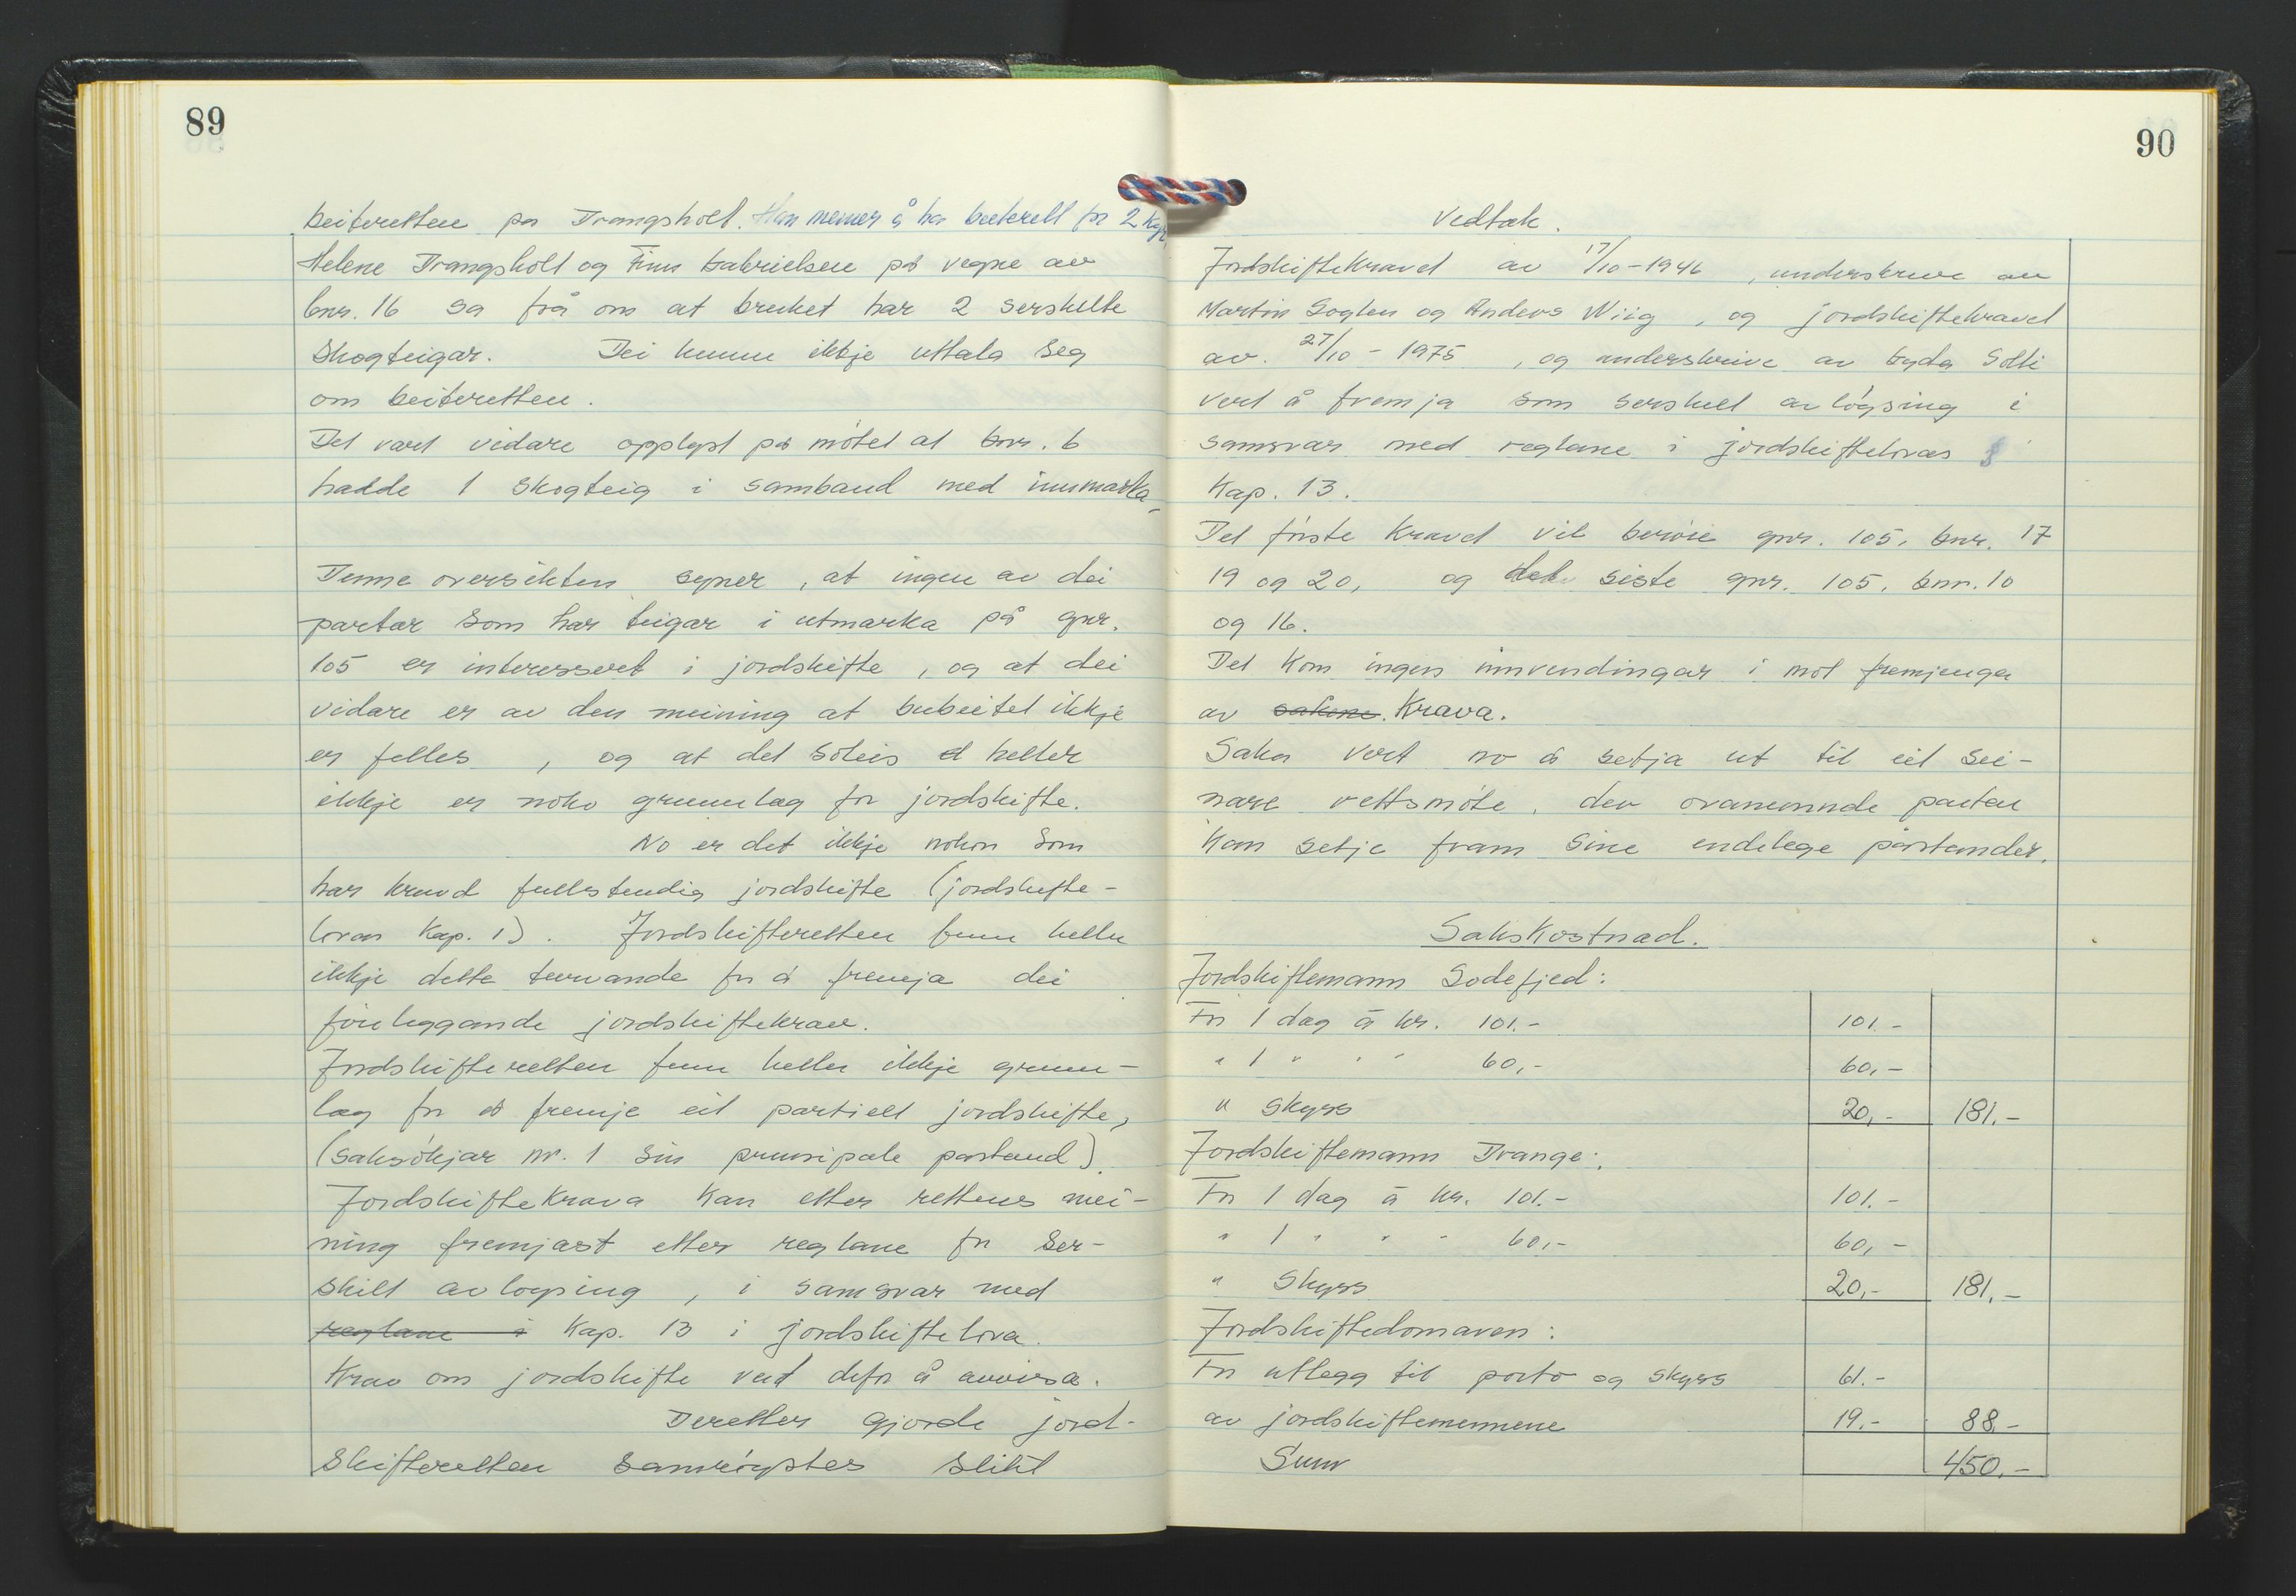 89
beiteretten på Drangsholt. Han meiner å ha beiterett for 2 kyr
Helene Drangsholt og Finn Gabrielsen på vegne av
bnr. 16 sa frå om at bruket har 2 serskilte
skogteigar. Dei kunne ikkje uttala seg
om beiteretten.
Det vart vidare opplyst på møtet at bnr. 6
hadde 1 skogteig i samband med innmarka.
Denne oversikten syner, at ingen av dei
partar som har teigar i utmarka på gnr.
105 er interessert i jordskifte, og at dei
vidare er av den meining at bubeitet ikkje
er felles, og at det såleis heller
ikkje er noko grunnlag for jordskifte.
No er det ikkje nokon som
har kravd fullstendig jordskifte (jordskifte-
lovas kap. 1). Jordskifteretten finn heller
ikkje dette turvande for å fremja dei
føreliggande jordskiftekrav.
Jordskifteretten finn heller ikkje grunn-
lag for å fremje eit partiell jordskifte,
(saksøkjar nr. 1 sin prinsipale påstand).
Jordskiftekrava kan etter rettens mei-
ning fremjast etter reglane for ser-
skilt avløysing, i samsvar med
reglane i kap. 13 i jordskiftelova.
Krav om jordskifte vert defor å avvisa.
Deretter gjorde jord-
skifteretten samrøystes slikt
90
Vedtak.
Jordskiftekravet av 17/10-1946, underskreve av
Martin Soglen og Anders Wiig, og jordskiftekravet
av. 27/10-1975, og underskrive av Gyda Solli
vert å fremja som serskilt avløysing i
samsvar med reglane i jordskiftelovas §
Kap. 13.
Det første kravet vil berøre gnr. 105, bnr. 17
19 og 20, og det siste gnr. 105, bnr. 10
og 16.
Det kom ingen innvendingar i mot fremjenga
av sakene. Krava.
Saka vert no å setja ut til eit sei-
nare rettsmøte, der ovanemnde partar
kan setje fram sine endelege påstander.
Sakskostnad.
Jordskiftemann Sodefjed:
For 1 dag á kr. 101.- 101.-
" 1 " " " 60,- 60,-
" skyss 20,- 181.-
Jordskiftemann Drange:
For 1 dag á kr. 101.- 101.-
" 1 " " " 60,- 60,-
" Skyss 20,- 181.-
Jordskiftedomaren:
For utlegg til porto og skyss 61.-
av jordskiftemennene 19.- 88.-
Sum 450.-